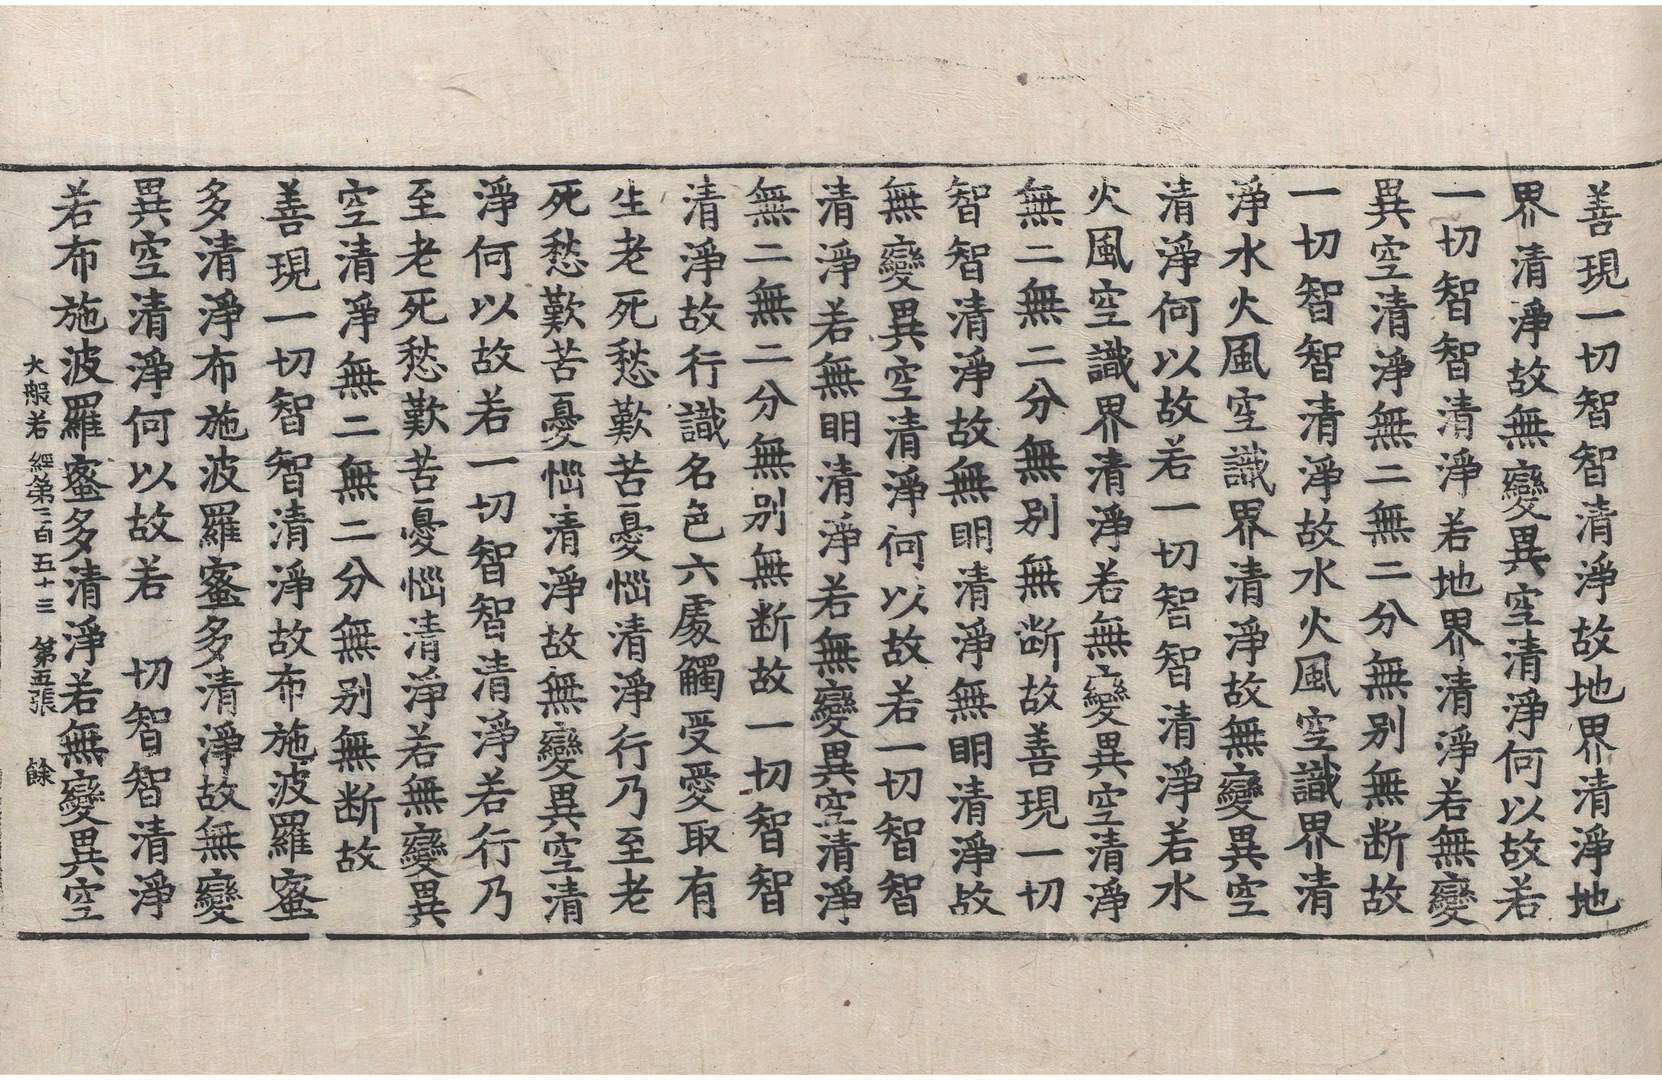 善現一切智智清淨故地界清淨地
界清淨故無變異空清淨何以故若
一切智智清淨若地界清淨若無變
異空清淨無二無二分無別無断故
一切智智清淨故水火風空識界清
淨水火風空識界清淨故無變異空
清淨何以故若一切智智清淨若水
火風空識界清淨若無變異空清淨
無二無二分無別無断故善現一切
智智清淨故無明清淨無明清淨故
無變異空清淨何以故若一切智智
清淨若無明清淨若無變異空清淨
無二無二分無別無断故一切智智
清淨故行識名色六處觸受愛取有
生老死愁歎苦憂惱清淨行乃至老
死愁歎苦憂惱清淨故無變異空清
淨何以故若一切智智清淨若行乃
至老死愁歎苦憂惱清淨若無變異
空清淨無二無二分無別無断故
善現一切智智清淨故布施波羅蜜
多清淨布施波羅蜜多清淨故無變
異空清淨何以故若 切智智清淨
若布施波羅蜜多清淨若無變異空
大般若經第三百五十三 第五張 餘